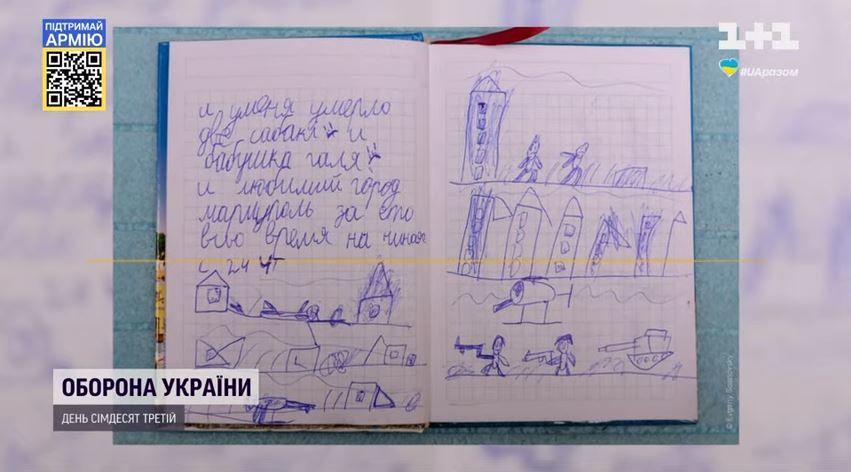 ПІДТРИМАЙ
АРМІЮ
1+1
#UAразом
и уменя умерло
две сабаки и
бабушка галя
и любимий город
мариуполь за это
всю время на чиная
с 24 чт
ОБОРОНА УКРАЇНИ
ДЕНЬ СІМДЕСЯТ ТРЕТІЙ
© Evgeny Sosnovsky